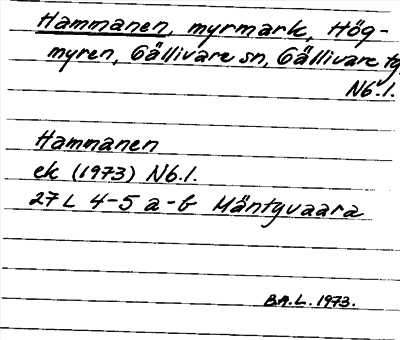 Hammanen, myrmark, Hög-
myren, Gällivare sn, Gällivare tg,
Nb.l.
Hammanen
ek (1973) Nb.l.
27 L 4-5 a-b Mäntyvaara
B.A.L. 1973.